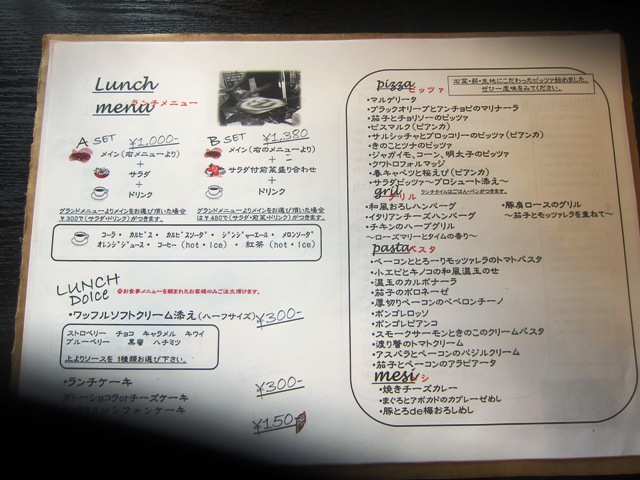 Lunch
menu ランチメニュー
A SET ¥1,000-
メイン(右のメニューより)
+
サラダ
+
ドリンク
B SET ¥1,380
メイン(右のメニューより)
+
サラダ付前菜盛り合わせ
+
ドリンク
グランドメニューよりメインをお選び頂いた場合
¥300で(サラダ・ドリンク)がつきます。
グランドメニューよりメインをお選び頂いた場合
は¥480で(サラダ・ドリンク)がつきます。
コーラ・カルピス・カルピスソーダ・ジンジャーエール・メロンソーダ
オレンジジュース・コーヒー(hot・ice)・紅茶(hot・ice)
LUNCH
DOLCE
※お食事メニューを頼まれたお客様のみご注文頂けます。
・ワッフルソフトクリーム添え(ハーフサイズ) ¥300-
ストロベリー チョコ キャラメル キウイ
ブルーベリー 黒蜜 ハチミツ
上よりソースを1種類お選び下さい。
・ランチケーキ ¥300-
ガトーショコラorチーズケーキ
シフォンケーキ
¥150
pizza ピッツァ
ぜひ一度味をみてください。
・マルゲリータ
・ブラックオリーブとアンチョビのマリナーラ
・茄子とチョリソーのピッツァ
・ビスマルク(ビアンカ)
・サルシッチャとブロッコリーのピッツァ(ビアンカ)
・きのことツナのピッツァ
・ジャガイモ、コーン、明太子のピッツァ
・クワトロフォルマッジ
・春キャベツと桜えび(ビアンカ)
・サラダピッツァ～プロシュート添え～
gril グリル ランチタイムはごはんパンがつきます。
・和風おろしハンバーグ
・イタリアンチーズハンバーグ
・チキンのハーブグリル
～ローズマリーとタイムの香り～
・豚肩ロースのグリル
～茄子とモッツァレラを重ねて～
pasta パスタ
・ベーコンととろーりモッツァレラのトマトパスタ
・小エビとキノコの和風温玉のせ
・温玉のカルボナーラ
・茄子のボロネーゼ
・厚切りベーコンのペペロンチーノ
・ボンゴレロッソ
・ボンゴレビアンコ
・スモークサーモンときのこのクリームパスタ
・渡り蟹のトマトクリーム
・アスパラとベーコンのバジルクリーム
・茄子とベーコンのアラビアータ
mesi メシ
・焼きチーズカレー
・まぐろとアボカドのカプレーゼめし
・豚とろde梅おろしめし